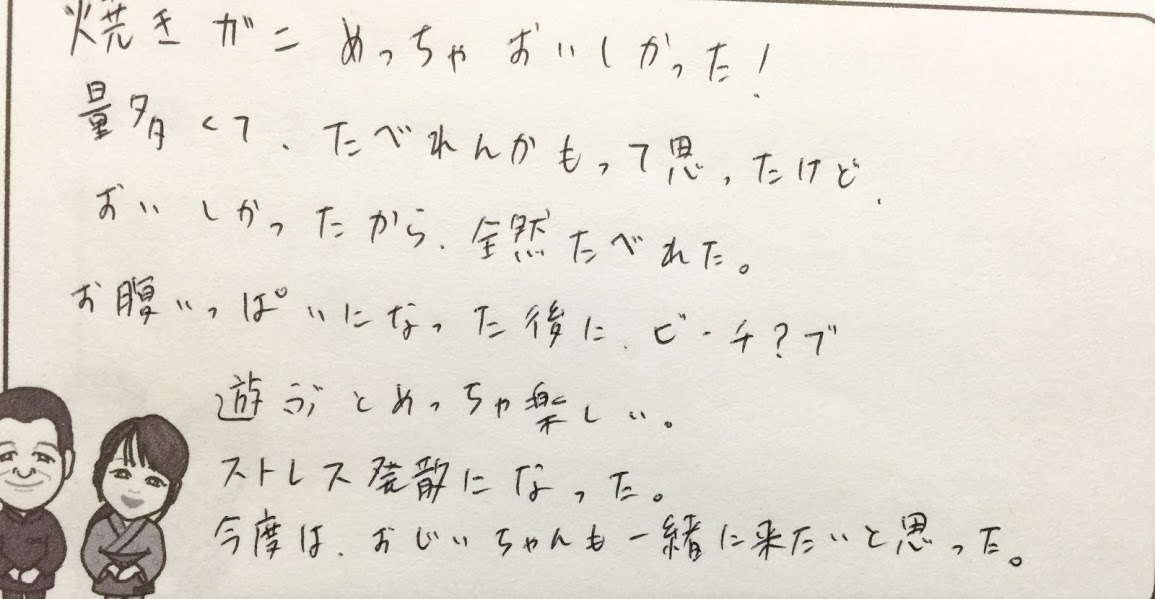 焼きガニ めっちゃ おいしかった!
量多くて、たべれんかもって思ったけど、
おいしかったから、全然たべれた。
お腹いっぱいになった後に、ビーチ?で
遊ぶとめっちゃ楽しい。
ストレス発散になった。
今度は、おじいちゃんも一緒に来たいと思った。